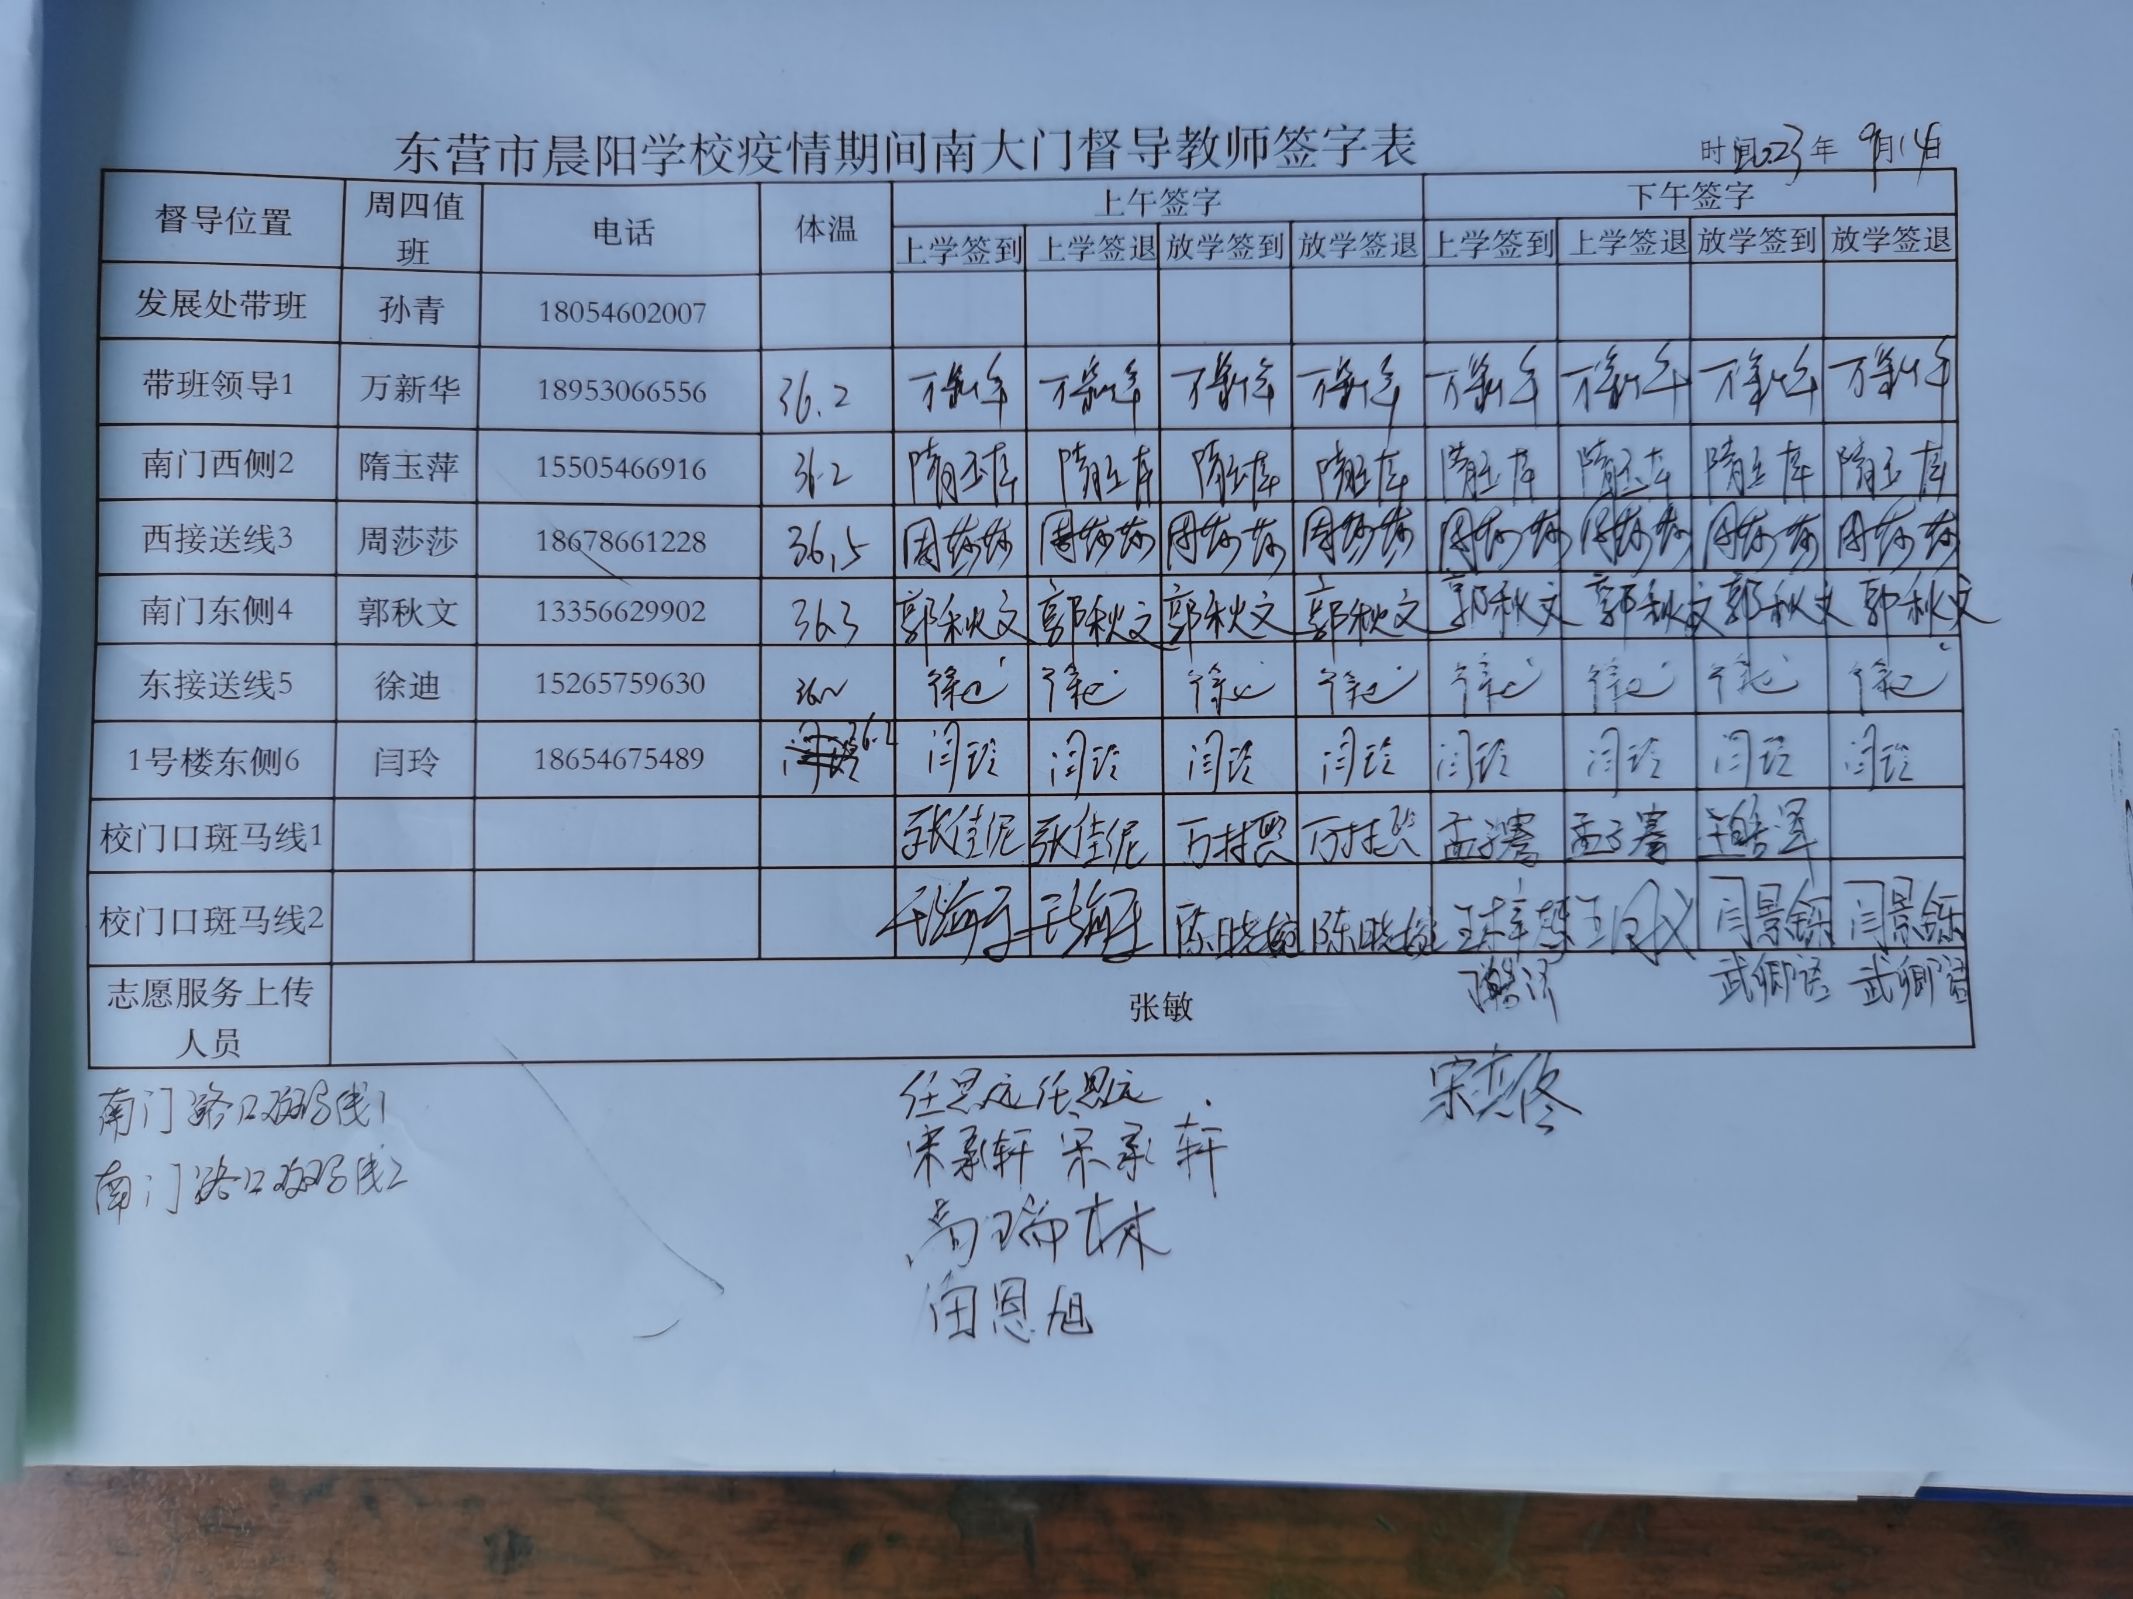 东营市晨阳学校疫情期间南大门督导教师签字表
时间2023年 9月14日
督导位置 周四值班 电话 体温 上午签字 下午签字
上学签到 上学签退 放学签到 放学签退 上学签到 上学签退 放学签到 放学签退
发展处带班 孙青 18054602007
带班领导1 万新华 18953066556 36.2 万新华 万新华 万新华 万新华 万新华 万新华 万新华 万新华
南门西侧2 隋玉萍 15505466916 36.2 隋玉萍 隋玉萍 隋玉萍 隋玉萍 隋玉萍 隋玉萍 隋玉萍 隋玉萍
西接送线3 周莎莎 18678661228 36.5 周莎莎 周莎莎 周莎莎 周莎莎 周莎莎 周莎莎 周莎莎 周莎莎
南门东侧4 郭秋文 13356629902 36.3 郭秋文 郭秋文 郭秋文 郭秋文 郭秋文 郭秋文 郭秋文 郭秋文
东接送线5 徐迪 15265759630 徐迪 徐迪 徐迪 徐迪 徐迪 徐迪 徐迪 徐迪
1号楼东侧6 闫玲 18654675489 36.2 闫玲 闫玲 闫玲 闫玲 闫玲 闫玲 闫玲 闫玲
校门口斑马线1 张佳妮 张佳妮 孟子骞 孟子骞
校门口斑马线2 闫景铄 闫景铄
武卿语 武卿语
志愿服务上传人员 张敏
南门路口斑马线1 任思远 任思远
宋承轩 宋承轩
南门路口斑马线2
高瑞林
闫恩旭